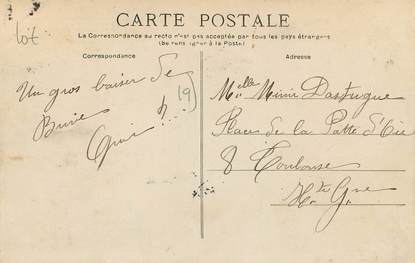 lot
CARTE POSTALE
La Correspondance au recto n'est pas acceptée par tous les pays étrangers
(se renseigner à la Poste)
Correspondance
Adresse
Un gros baiser de
19
Melle Mimi Dastugue
Place de la Patte d'Oie
8 Toulouse
Hte Gne